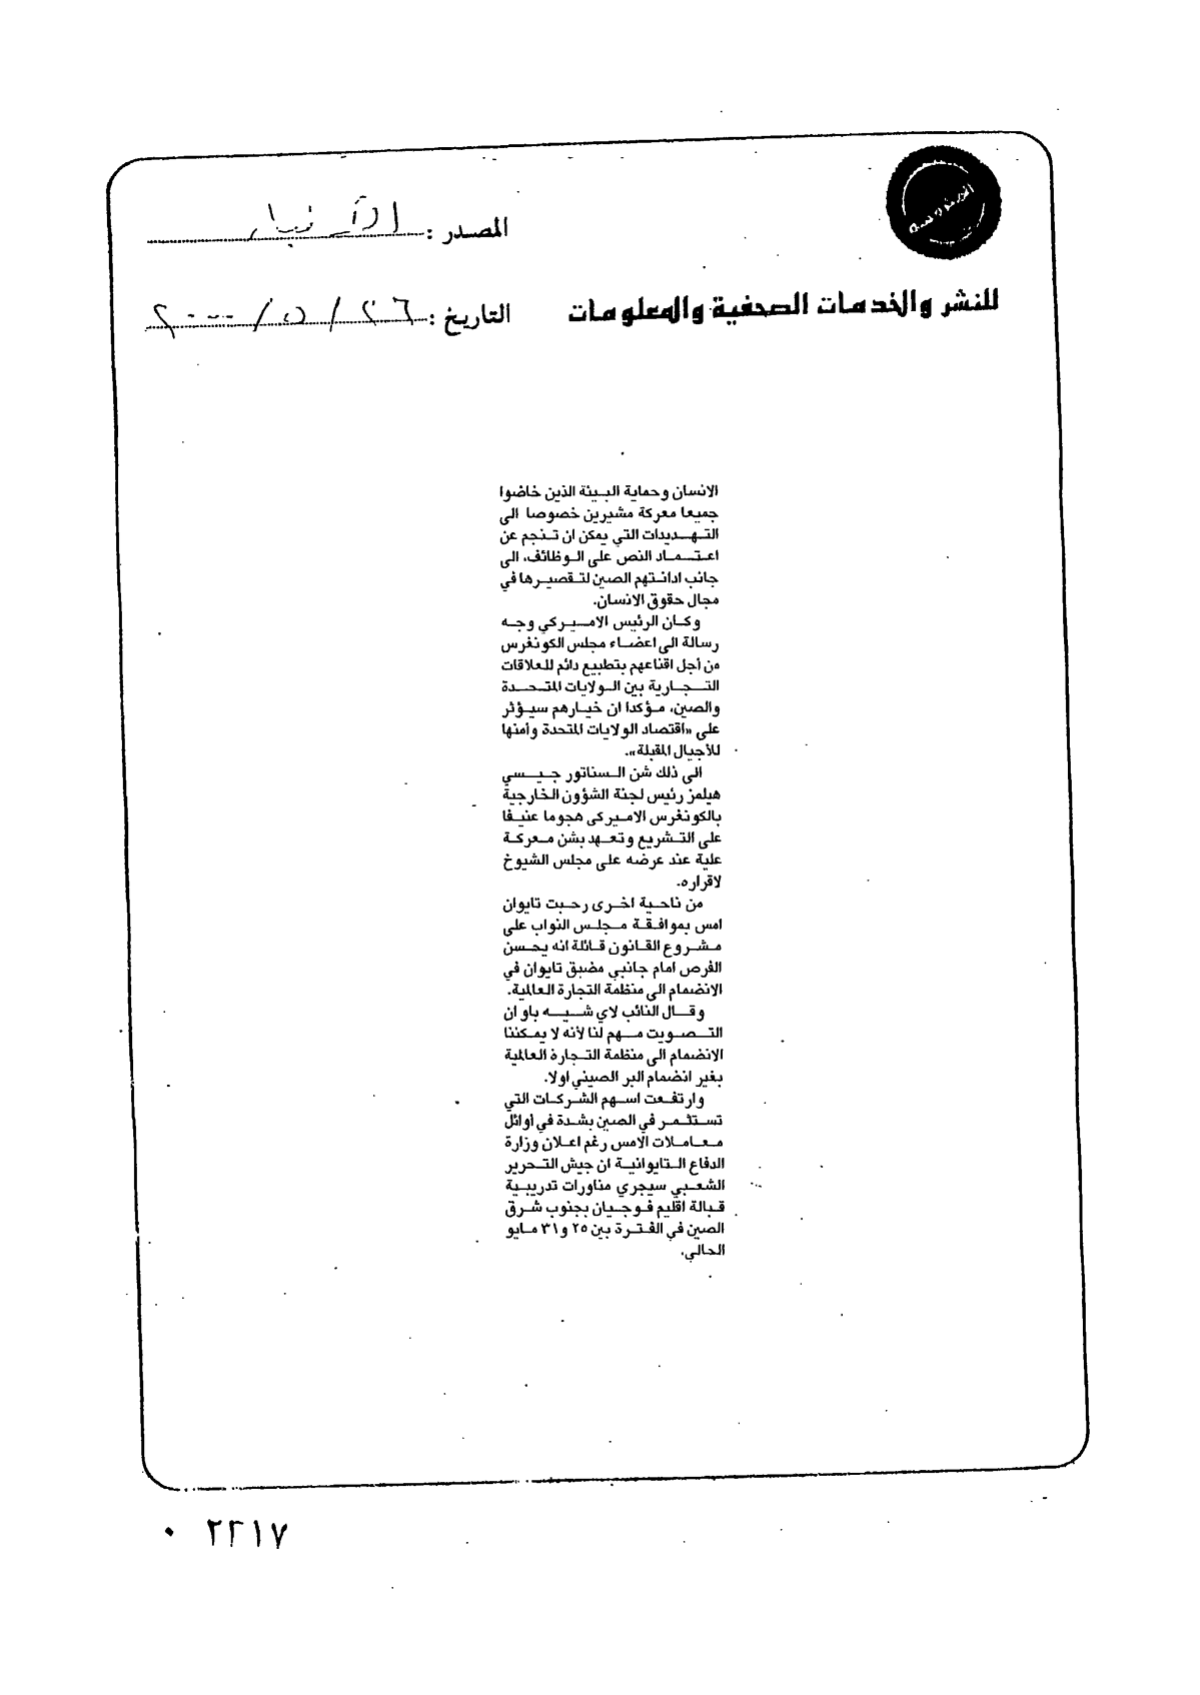 المصدر : الأنباء
للنشر والخدمات الصحفية والمعلومات
التاريخ : ٢٦ / ٥ / ٢٠٠٠
الانسان وحماية البيئة الذين خاضوا
جميعا معركة مشيرين خصوصا الى
التهديدات التي يمكن ان تنجم عن
اعتماد النص على الوظائف، الى
جانب ادانتهم الصين لتقصيرها في
مجال حقوق الانسان.
وكان الرئيس الاميركي وجه
رسالة الى اعضاء مجلس الكونغرس
من أجل اقناعهم بتطبيع دائم للعلاقات
التجارية بين الولايات المتحدة
والصين، مؤكدا ان خيارهم سيؤثر
على «اقتصاد الولايات المتحدة وأمنها
للأجيال المقبلة».
الى ذلك شن السناتور جيسي
هيلمز رئيس لجنة الشؤون الخارجية
بالكونغرس الاميركي هجوما عنيفا
على التشريع وتعهد بشن معركة
علية عند عرضه على مجلس الشيوخ
لاقراره.
من ناحية اخرى رحبت تايوان
امس بموافقة مجلس النواب على
مشروع القانون قائلة انه يحسن
الفرص امام جانبي مضبق تايوان في
الانضمام الى منظمة التجارة العالمية.
وقال النائب لاي شيه باو ان
التصويت مهم لنا لأنه لا يمكننا
الانضمام الى منظمة التجارة العالمية
بغير انضمام البر الصيني اولا.
وارتفعت اسهم الشركات التي
تستثمر في الصين بشدة في أوائل
معاملات الامس رغم اعلان وزارة
الدفاع التايوانية ان جيش التحرير
الشعبي سيجري مناورات تدريبية
قبالة اقليم فوجيان بجنوب شرق
الصين في الفترة بين ٢٥ و٣١ مايو
الحالي.
٠ ٢٢١٧